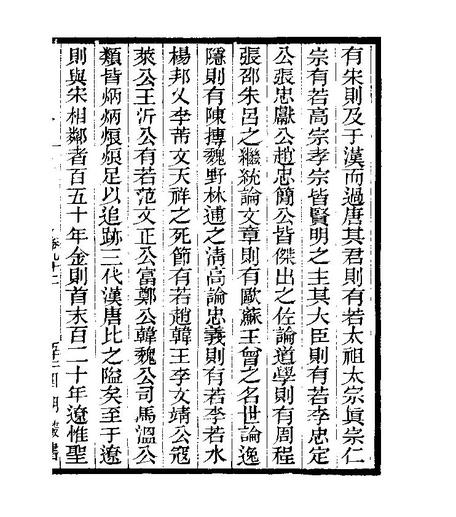 有宋則及于漢而過唐其君則有若太祖太宗眞宗仁
宗有若高宗孝宗皆賢明之主其大臣則有若李忠定
公張忠獻公趙忠簡公皆傑出之佐論道學則有周程
張邵朱呂之繼統論文章則有歐蘇王曾之名世論逸
隱則有陳摶魏野林逋之清高論忠義則有若李若水
楊邦乂李芾文天祥之死節有若趙韓王李文靖公寇
萊公王沂公有若范文正公富鄭公韓魏公司馬溫公
類皆炳炳烺烺足以追跡三代漢唐比之隘矣至于遼
則與宋相鄰者百五十年金則首末百二十年遼惟聖